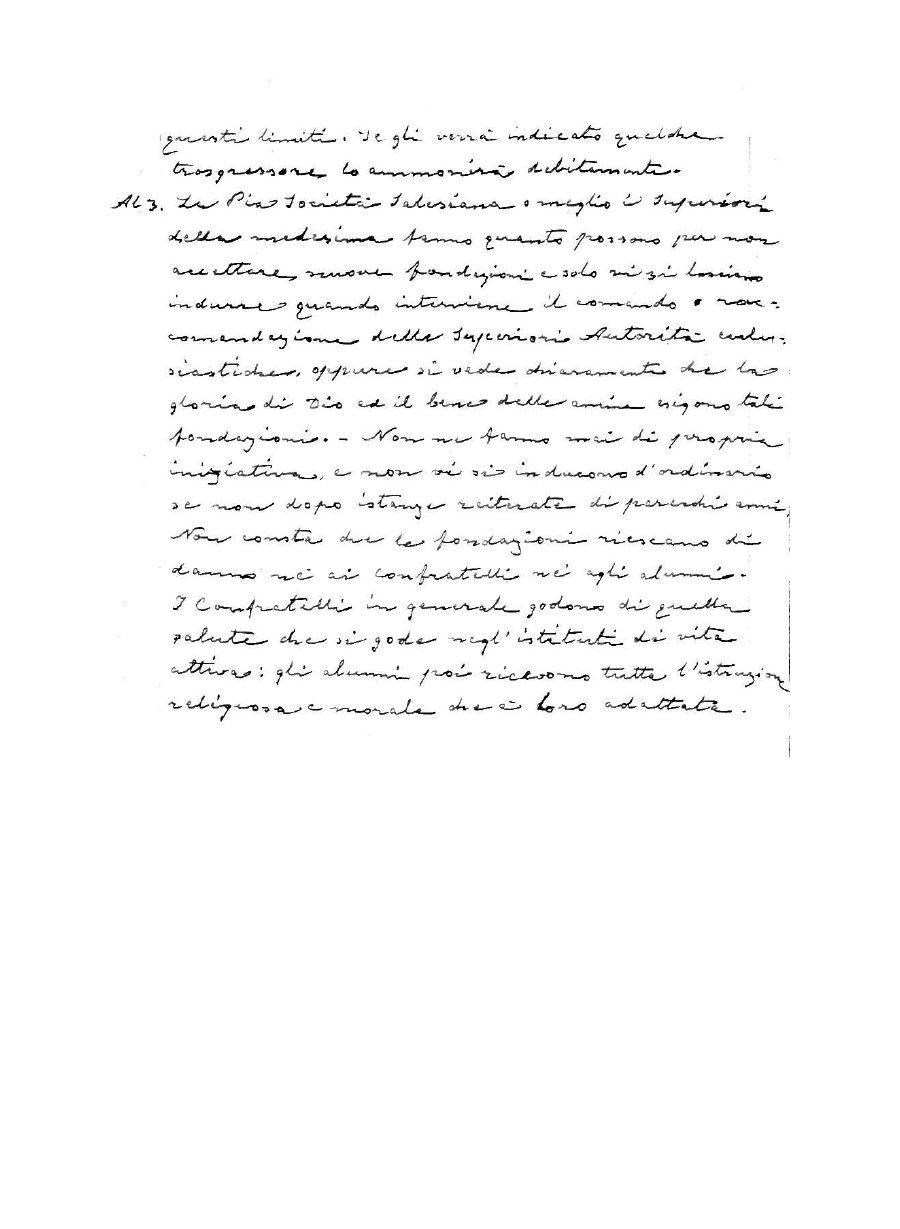 questi limiti. Se gli verrà indicato qualche
trasgressore lo ammonirà debitamente.
Al 3. La Pia Società Salesiana o meglio i Superiori
della medesima fanno quanto possono per non
accettare nuove fondazioni e solo vi si lasciano
indurre quando interviene il comando o rac-
comandazione delle Superiori Autorità eccle-
siastiche, oppure si vede chiaramente che la
gloria di Dio ed il bene delle anime esigono tali
fondazioni. - Non ne fanno mai di propria
iniziativa, e non vi si inducono d'ordinario
se non dopo istanze reiterate di parecchi anni,
Non consta che le fondazioni riescano di
danno nè ai confratelli nè agli alunni.
I Confratelli in generale godono di quella
salute che si gode negl'istituti di vita
attiva: gli alunni poi ricevono tutta l'istruzione
religiosa e morale che è loro adattata.